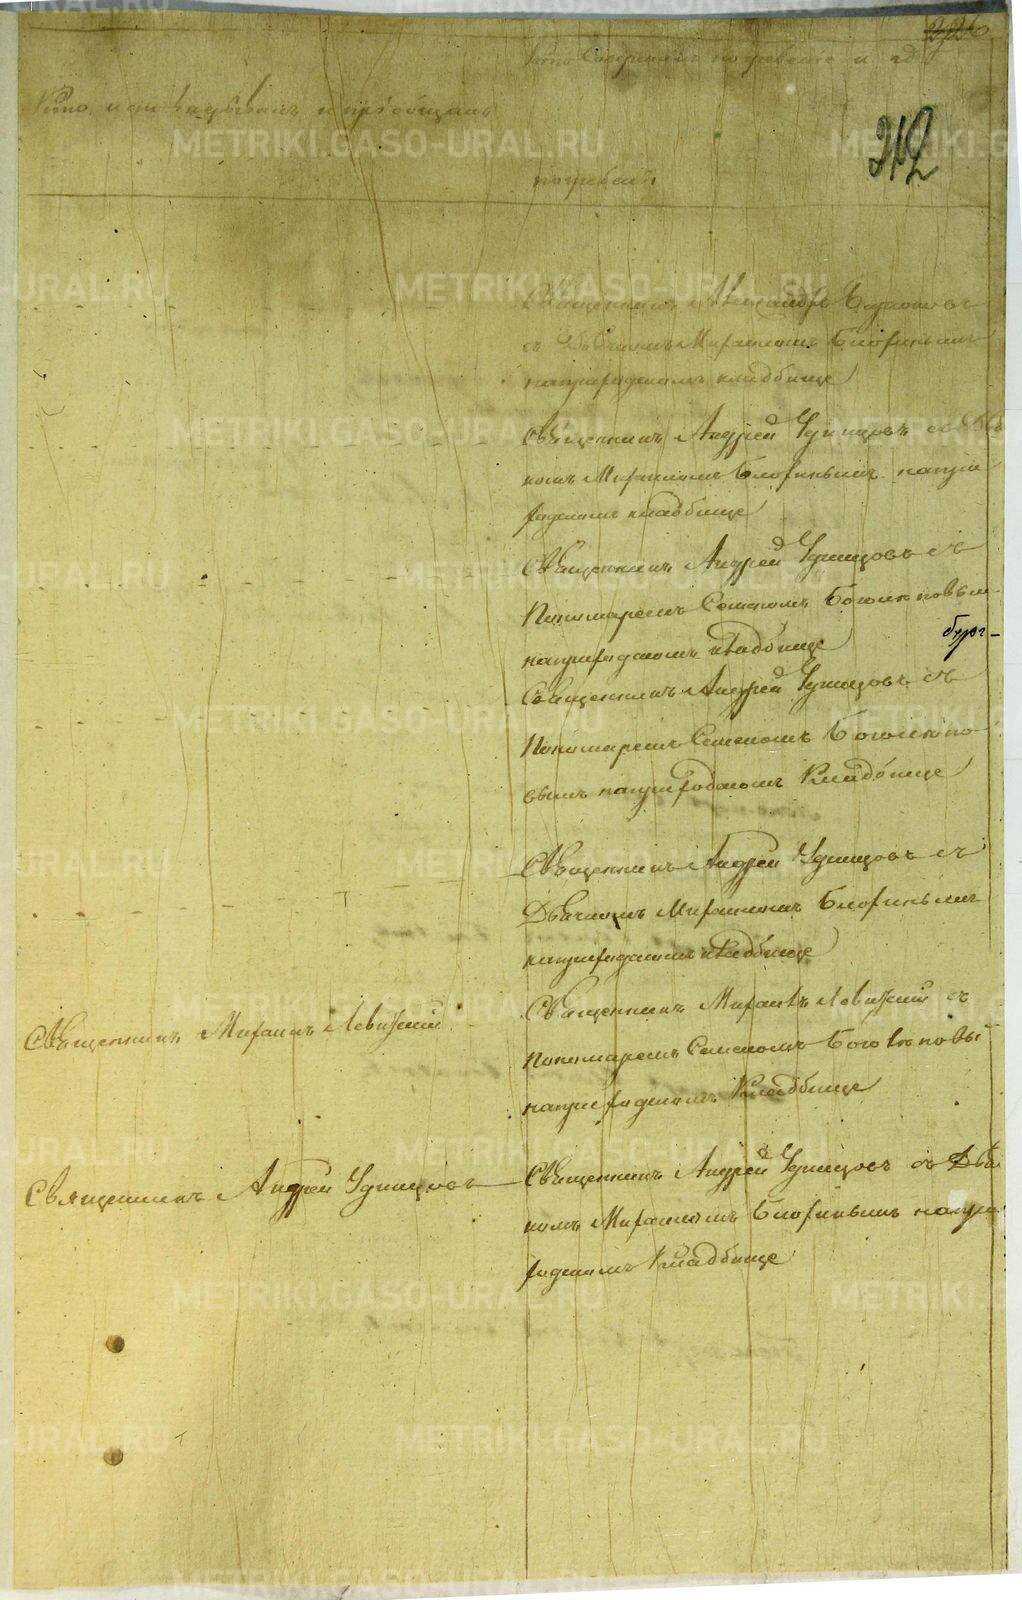 312
Кто исповѣдывалъ и пріобщалъ
Кто совершалъ погребеніе и гдѣ
погребенъ
Священникъ Александръ
съ Дьячкомъ Михаиломъ
наприходскомъ кладбище
Священникъ Андрей Удинцовъ съ Дьяч
комъ Михаиломъ наприх
одскомъ кладбище
Священникъ Андрей Удинцовъ съ
Пономаремъ Семеномъ Боголеповым
наприходскомъ кладбище
Священникъ Андрей Удинцовъ съ
Пономаремъ Семеномъ Боголепо
вымъ наприходскомъ Кладбище
Священникъ Андрей Удинцовъ съ
Дьячкомъ Михаиломъ
наприходскомъ кладбище
Священникъ Михаилъ Левицкій
Священникъ Михаилъ Левицкій съ
Пономаремъ Семеномъ Боголеповы
наприходскомъ Кладбище
Священникъ Андрей Удинцовъ
Священникъ Андрей Удинцовъ съ Дья
комъ Михаиломъ наприх
одскомъ Кладбище
METRIKI.GASO-URAL.RU